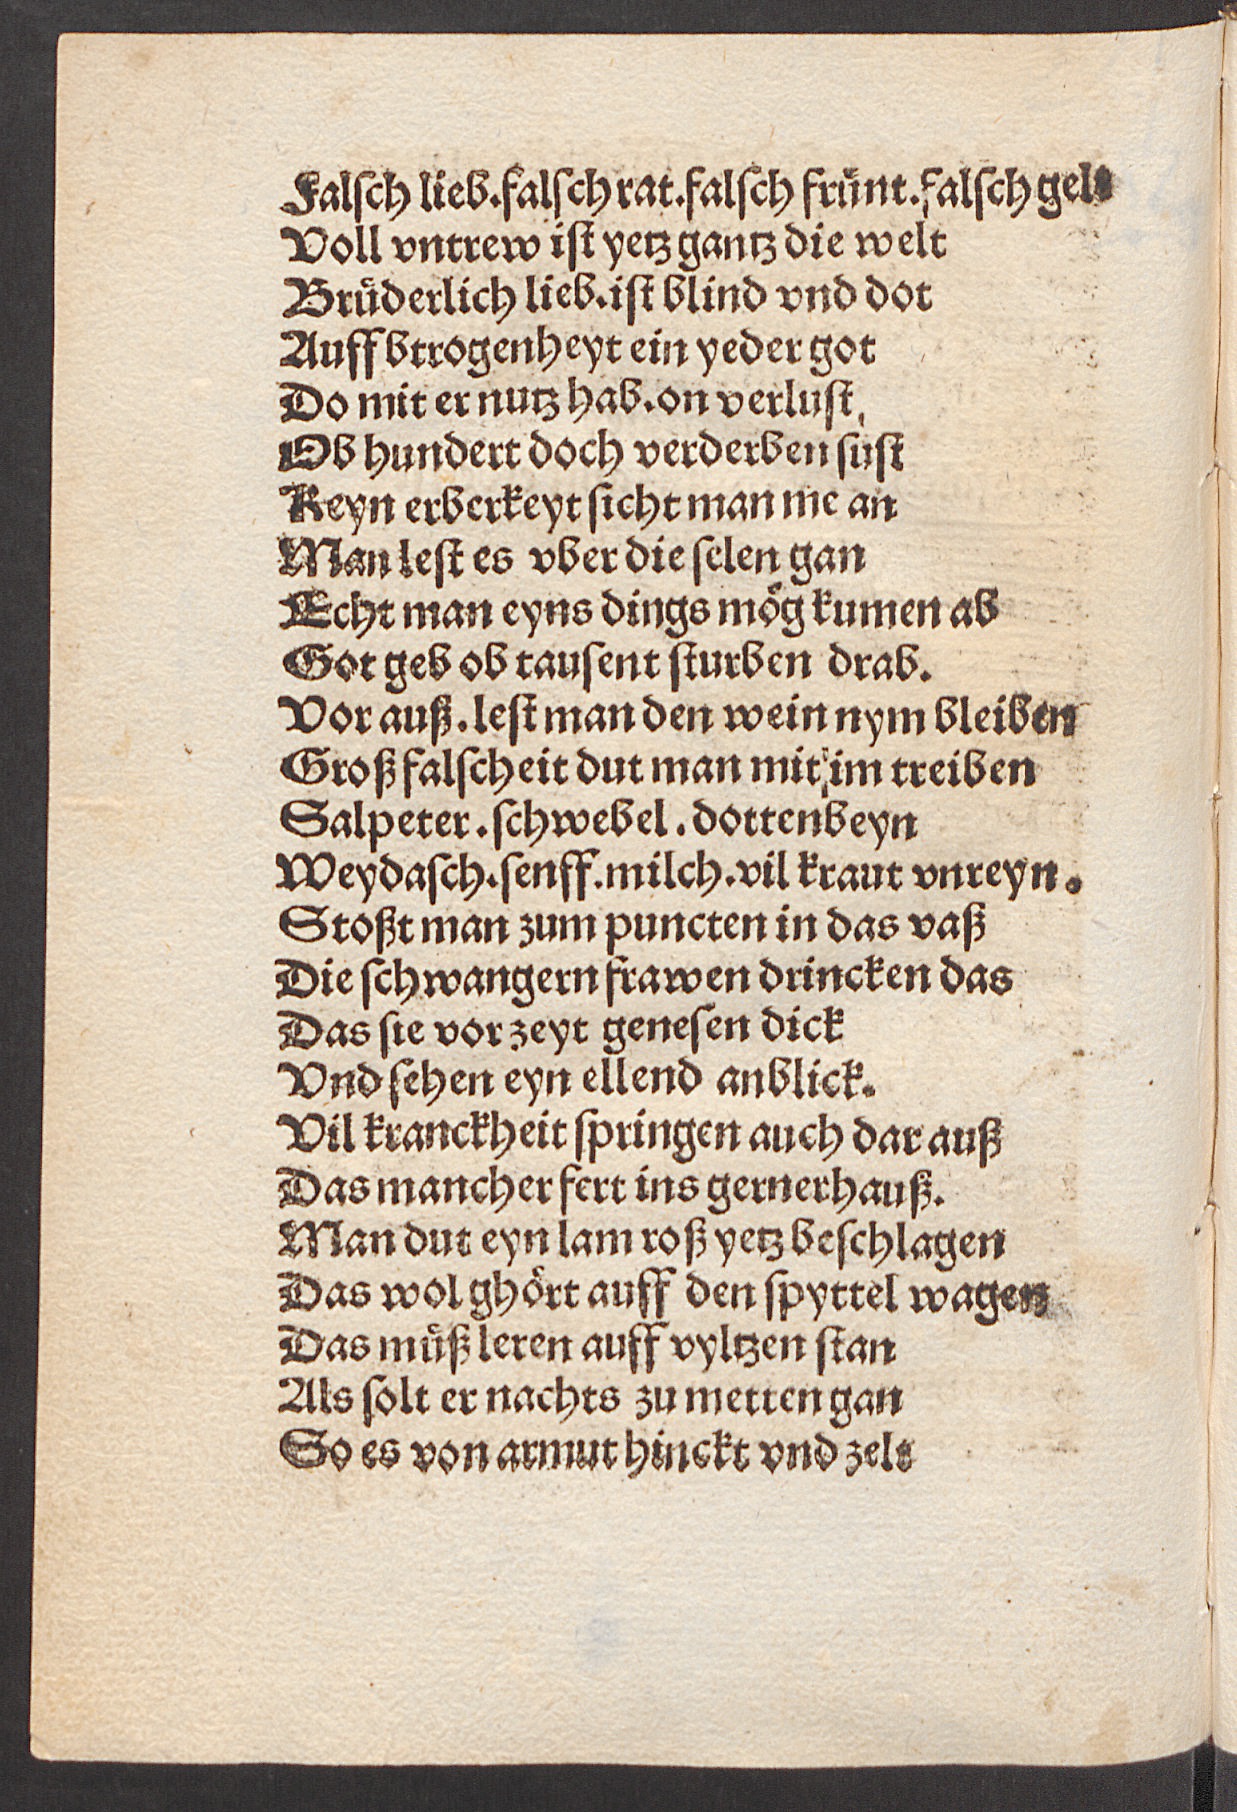 Falſch lieb.falſch rat.falſch frünt.falſch gelt
Voll vntrew iſt yetz gantz die welt
Brüderlich lieb.iſt blind vnd dot
Auff btrogenheyt ein yeder got
Do mit er nutz hab.on verluſt,
Ob hundert doch verderben ſuſt
Keyn erberkeyt ſicht man me an
Man leſt es vber die ſelen gan
Echt man eyns dings mög kumen ab
Got geb ob tauſent ſturben drab.
Vor auß.leſt man den wein nym bleiben
Groß falſcheit dut man mit im treiben
Salpeter.ſchwebel.dottenbeyn
Weydaſch.ſenff.milch.vil kraut vnreyn.
Stoßt man zum puncten in das vaß
Die ſchwangern frawen drincken das
Das ſie vor zeyt geneſen dick
Vnd ſehen eyn ellend anblick.
Vil kranckheit ſpringen auch dar auß
Das mancher fert ins gernerhauß.
Man dut eyn lam roß yetz beſchlagen
Das wol ghört auff den ſpyttel wagen
Das müß leren auff vyltzen ſtan
Als ſolt er nachts zu metten gan
So es von armut hinckt vnd zelt